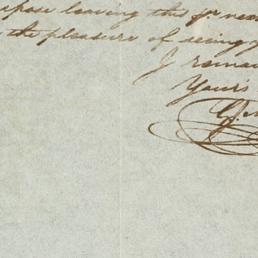 leaving this for
the pleasure of seeing
I remain
Yours